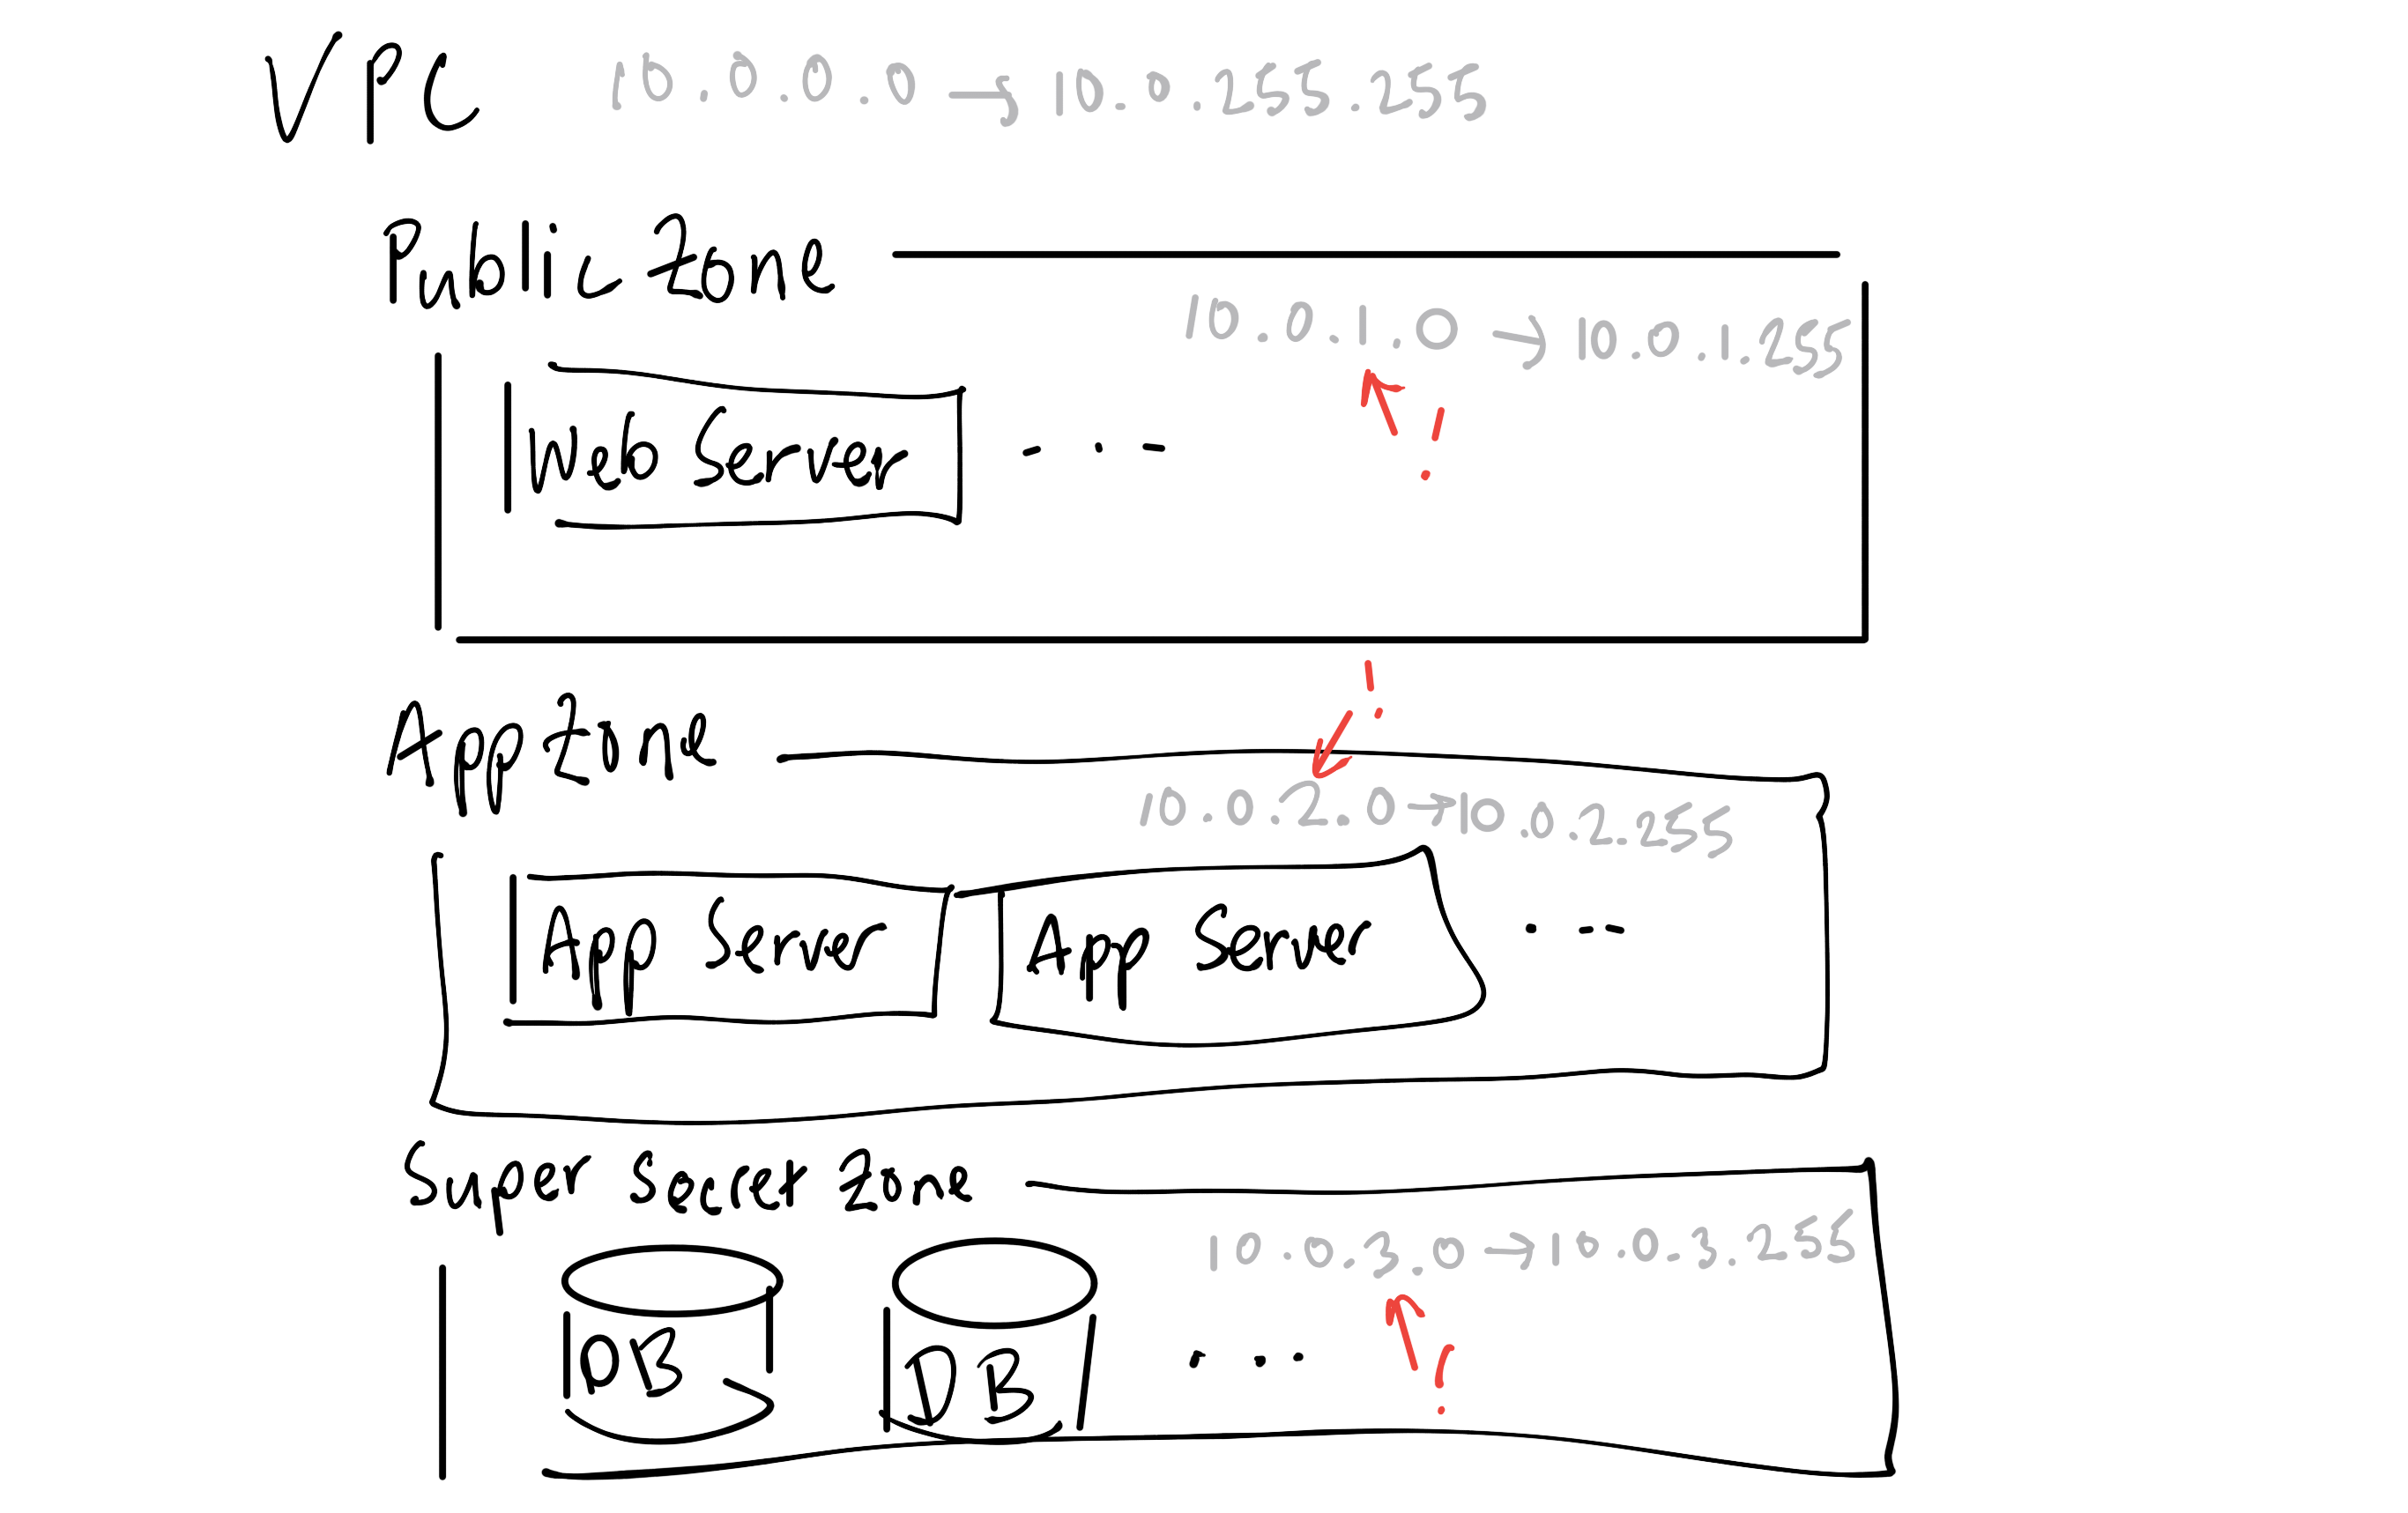 VPC 10.0.0.0 → 10.0.255.255
Public Zone
10.0.1.0 → 10.0.1.255
Web Server ...
!
!
App Zone
10.0.2.0 → 10.0.2.255
App Server App Server ...
Super Secret Zone
10.0.3.0 → 10.0.3.255
DB DB ...
!